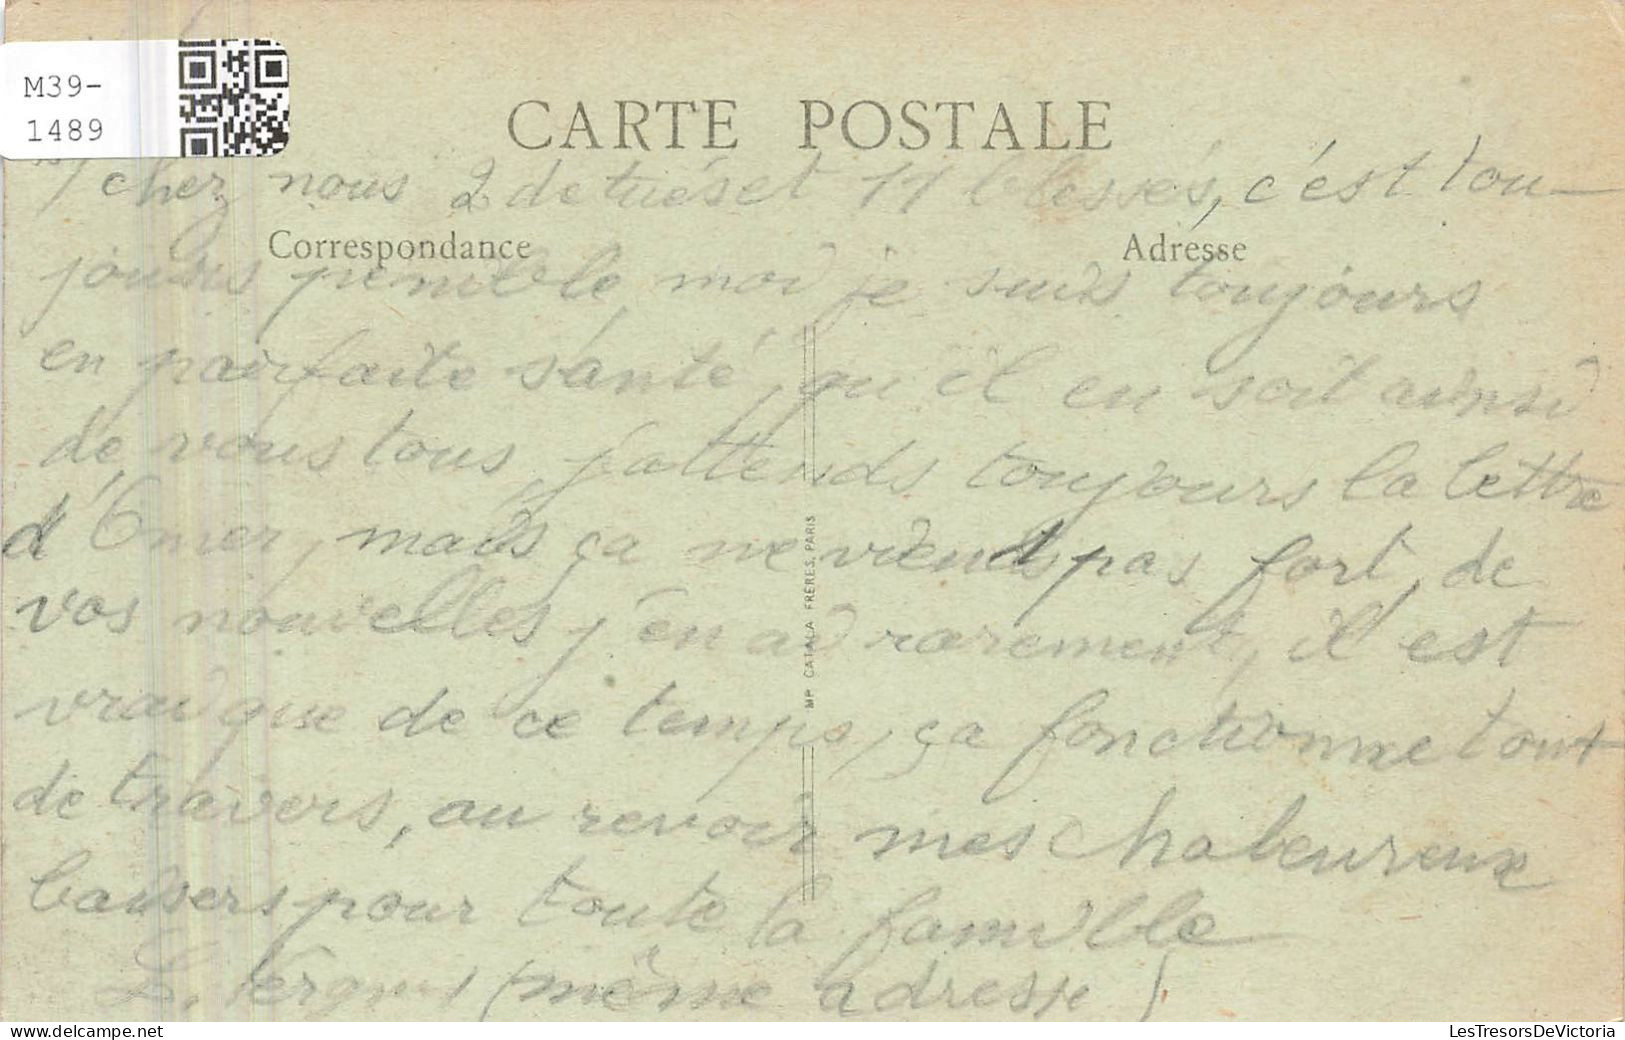 M39-
1489
CARTE POSTALE
chez nous 2 de tués et 11 blessés, c'est tou-
Correspondance
Adresse
jours penible, moi je suis toujours
en parfaite santé, qu'il en soit ainsi
de vous tous j'attends toujours la lettre
d'Omer, mais ça ne viends pas fort, de
vos nouvelles j'en ai rarement, il est
vrai que de ce temps, ça fonctionne tout
de travers, au revoir mes chaleureux
baisers pour toute la famille
L. (même adresse)
IMP. CATALA FRERES, PARIS
LesTresorsDeVictoria